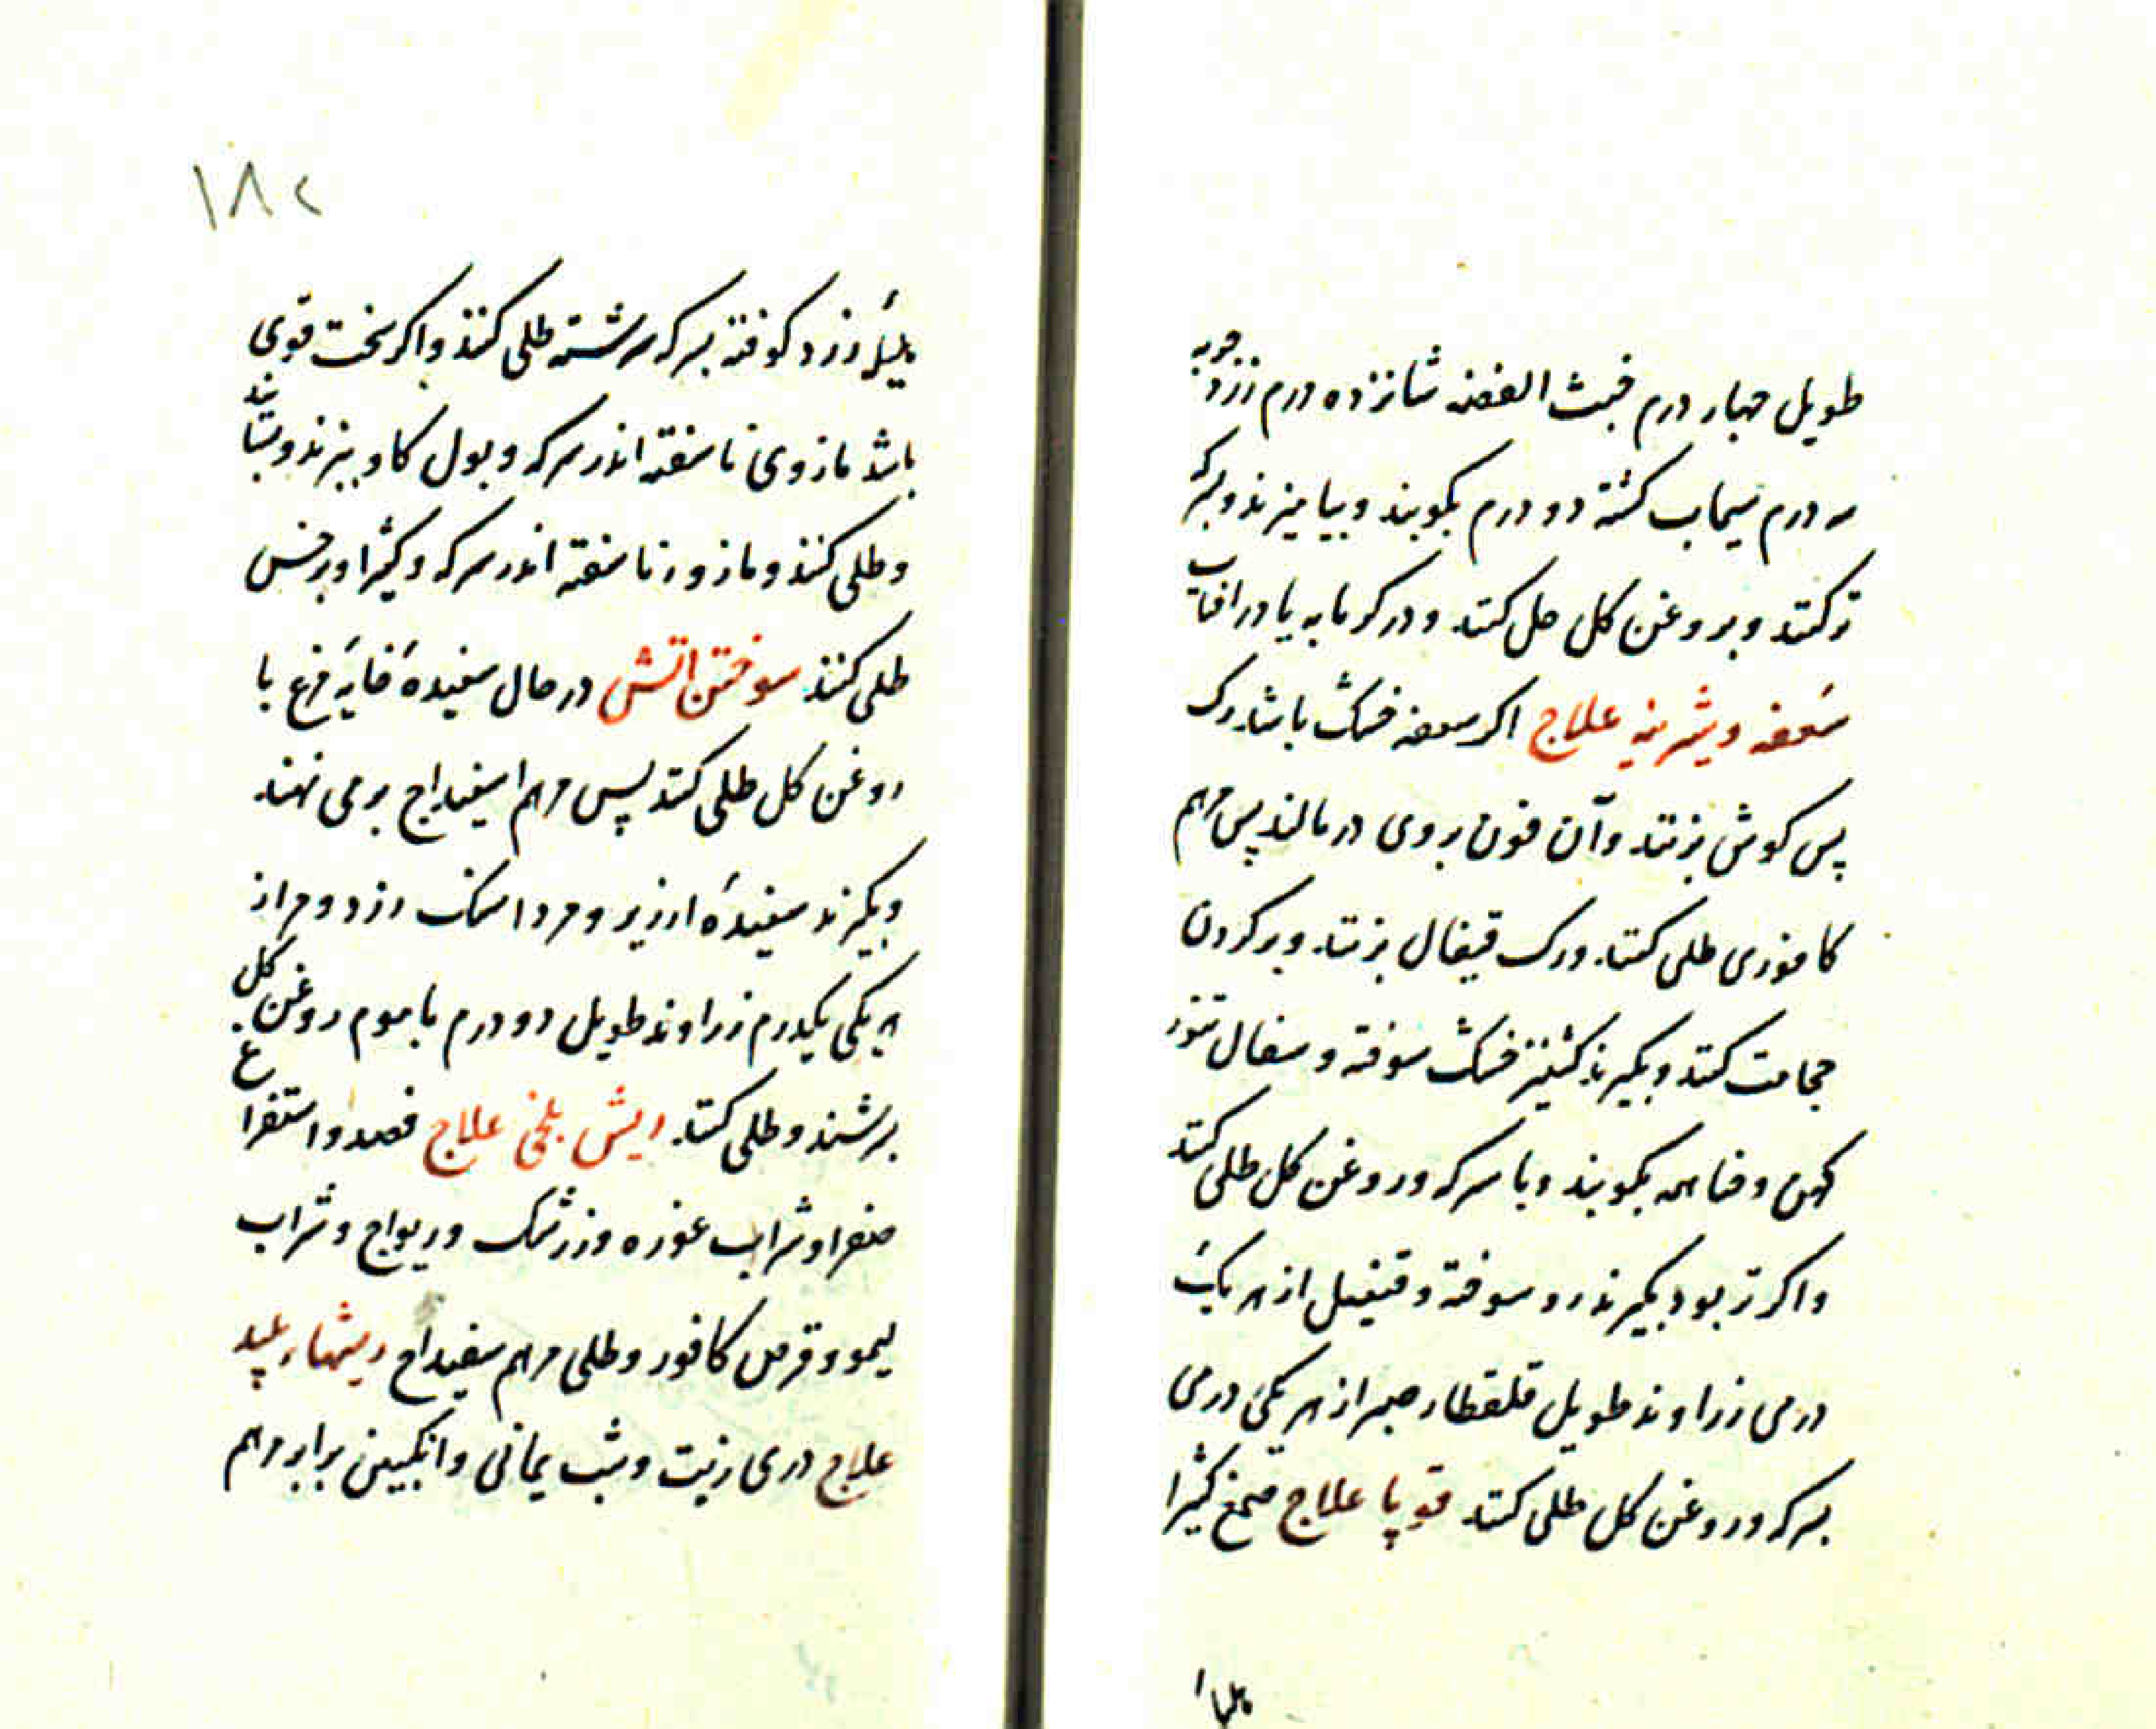 طویل چهار درم خبث الفضه شانزده درم زردجوبه
سه درم سیماب کشته دو درم بکوبند و بیامیزند و بسرکه
تر کنند و بروغن کل حل کنند و در کرمابه یا در افتاب
سعفه و شیرینه علاج اکر سعفه خشک باشد رک
پس کوش بزنند و آن خون بروی درمالند پس مرهم
کافوری طلی کنند ورک قیفال بزنند و بر کردن
حجامت کنند و بکیرند کشنیز خشک سوخته و سفال تنور
کهن و حنا همه بکوبند و با سرکه و روغن کل طلی کنند
واکر تر بود بکیرند رو سوخته و قنبیل از هر یک
درمی زراوند طویل قلقطار صبر از هر یکی درمی
بسرکه و روغن کل طلی کنند قوبا علاج صمغ کثیرا
هلیا
۱۸۲
هلیلۀ زرد کوفته بسرکه سرشته طلی کنند واکر سخت قوی
باشد مازوی ناسفته اندر سرکه و بول کاو بپزند و بستانند
و طلی کنند و مازو ناسفته اندر سرکه و کثیرا و برخس
طلی کنند سوختن اتش در حال سفیدۀ خایۀ مرغ با
روغن کل طلی کنند پس مرهم اسفیداج برمی نهند
و بکیرند سفیدۀ ارزیر و مرداسنک زرد و مر از
هر یکی یکدرم زراوند طویل دو درم با موم روغن کل
برشند و طلی کنند ریش بلخی علاج فصد و استفراغ
صفرا و شراب غوره و زرشک و ریواج و شراب
لیمو و قرص کافور و طلی مرهم سفیداج ریشهاء پلید
علاج دردی زیت و شب یمانی و انکبین برابر مرهم